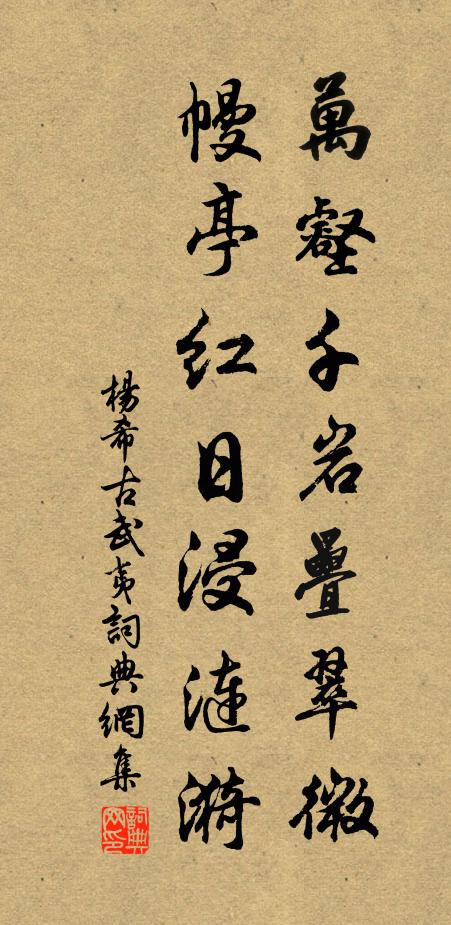 萬壑千岩疊翠微
幔亭紅日浸漣漪
楊希古武夷詞典網集
詞典網印